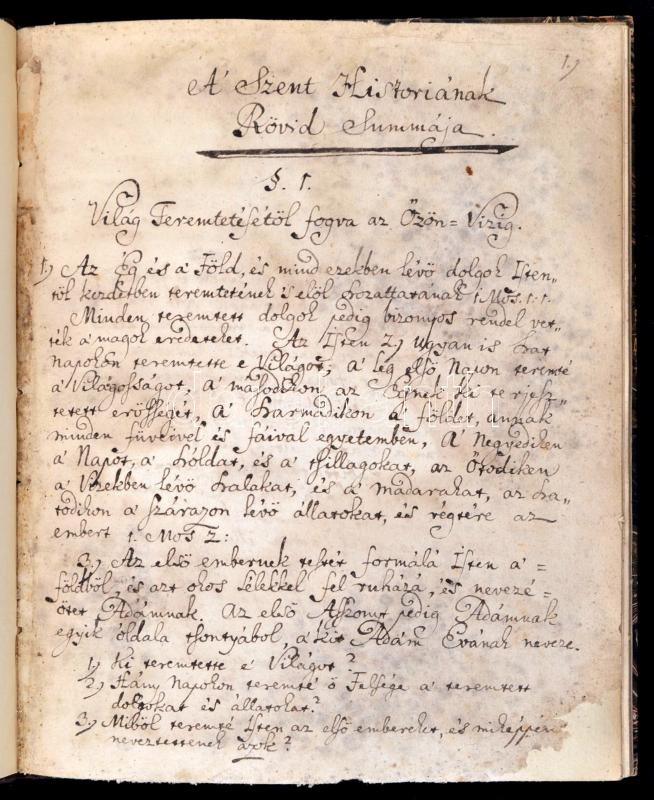 1)
A' Szent Historiának
Rövid Summája.
§. 1.
Világ Teremtetésétöl fogva az Özön=Vizig.
1) Az Ég és a' Föld, és mind ezekben lévö dolgok Isten„
töl kezdetben teremtetének 's elöl hozattatának 1 Mós. 1. 1.
Minden teremtett dolgok pedig bizonyos rendel vet„
ték a magok eredeteket. Az Isten 2) ugyan is hat
napokon teremtette e' Világot, a' leg elsö Napon teremté
a' Világosságot, a' másodikon az Égnek ki terjesz„
tetett erösségét, a' harmadikon a' földet, annak
minden füveivel és fáival egyetemben, a' Negyediken
a' Napot, a' holdat, és a' tsillagokat, az Ötödiken
a' Vizekben lévö halakat, és a' madarakat, az ha„
todikon a' szárazon lévö állatokat, és végtére az
embert 1. Mós 2:
3) Az elsö embernek testét formálá Isten a'=
földböl, és azt okos lélekkel fel ruházá, és nevezé=
ötet Ádámnak. Az elsö Aszonyt pedig Ádámnak
egyik oldala tsontyából, a' kit Ádám Évának neveze.
1) Ki teremtette e' Világot?
2) Hány Napokon teremté ö Felsége a' teremtett
dolgokat és állatokat?
3) Miböl teremté Isten az elsö embereket, és miképpen
neveztettenek azok?